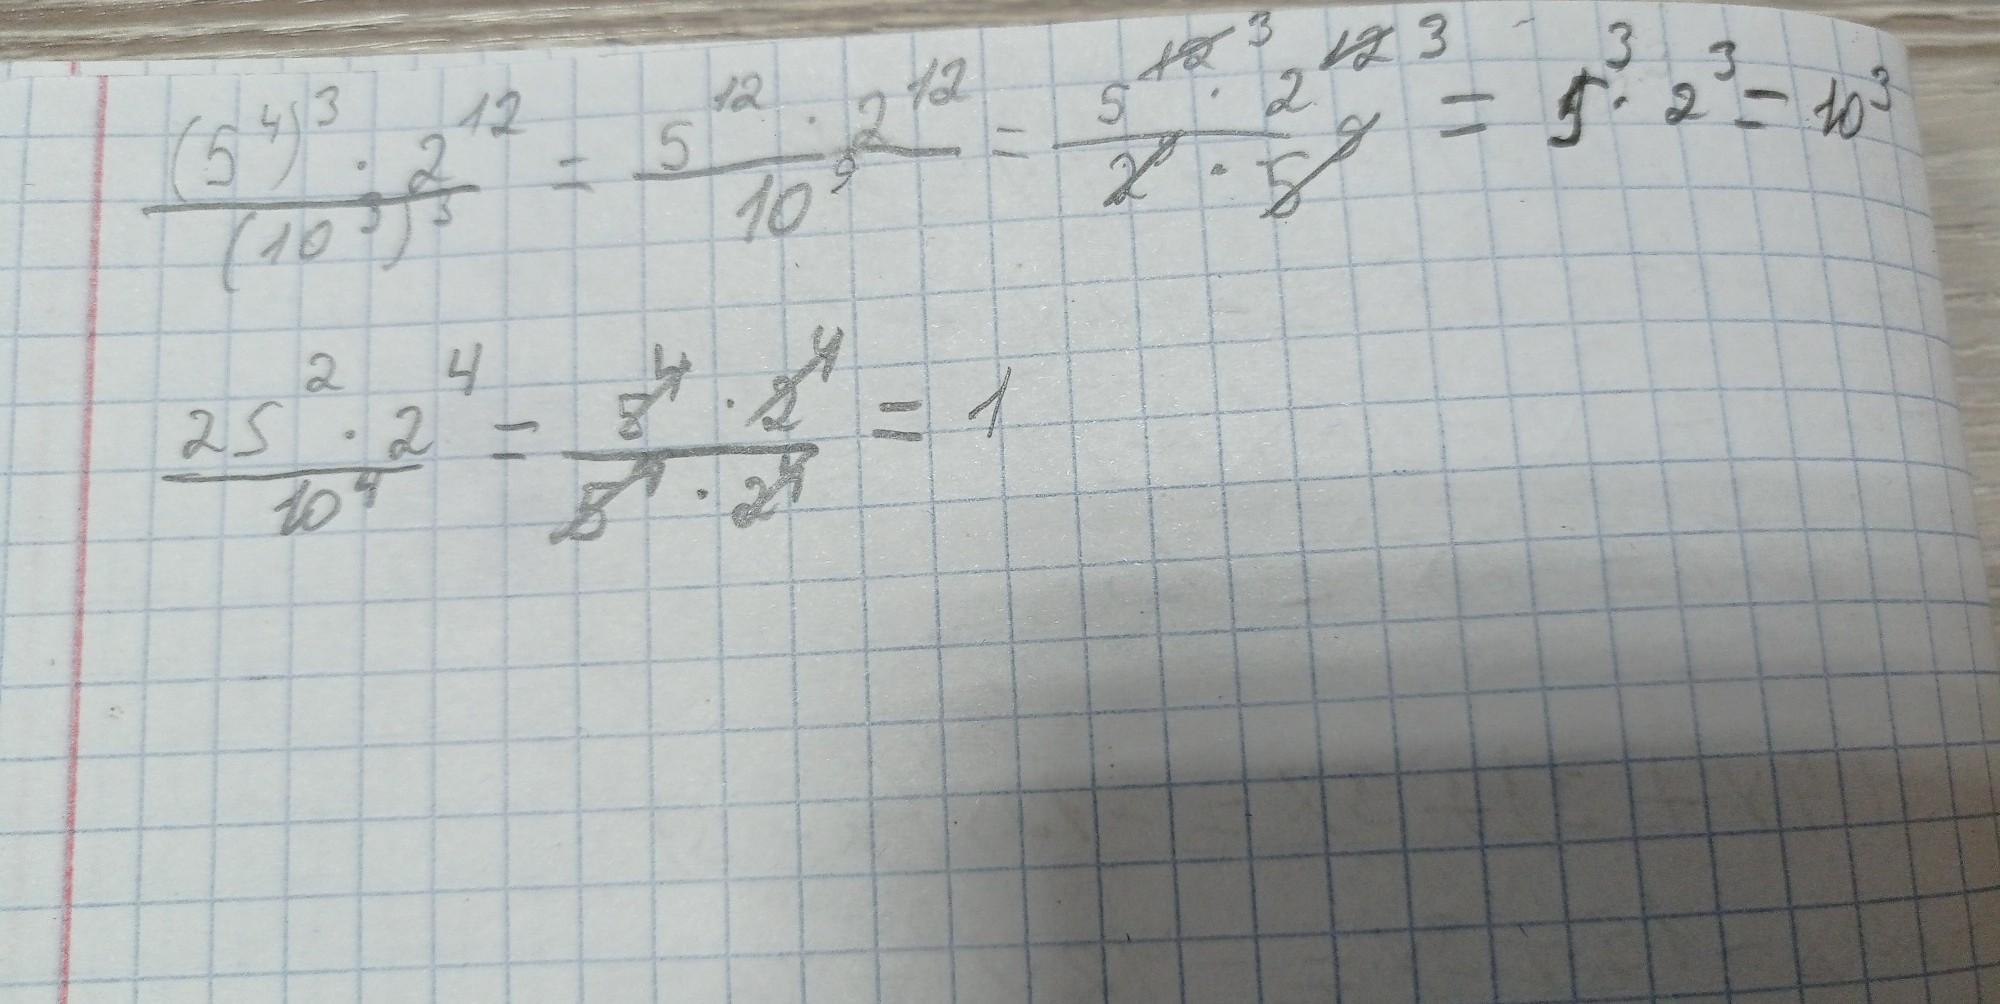 (5⁴)³ · 2¹² / (10³)³ = 5¹² · 2¹² / 10⁹ = 5¹² ³ · 2¹² ³ / 2⁹ · 5⁹ = 5³ · 2³ = 10³
25² · 2⁴ / 10⁴ = 5⁴ · 2⁴ / 5⁴ · 2⁴ = 1